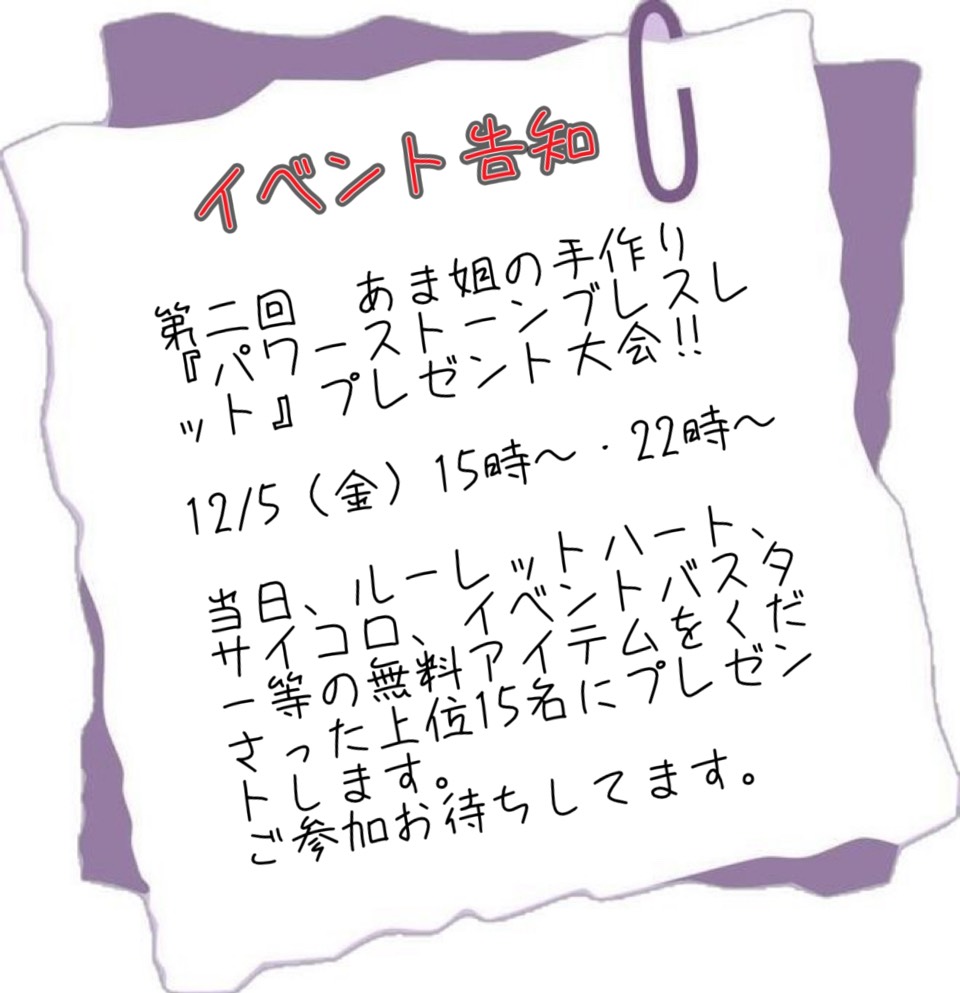 イベント告知
第二回　あま姐の手作り
『パワーストーンブレスレ
ット』プレゼント大会!!
12/5（金）15時～・22時～
当日、ルーレットハート、
サイコロ、イベントバスタ
ー等の無料アイテムをくだ
さった上位15名にプレゼン
トします。
ご参加お待ちしてます。